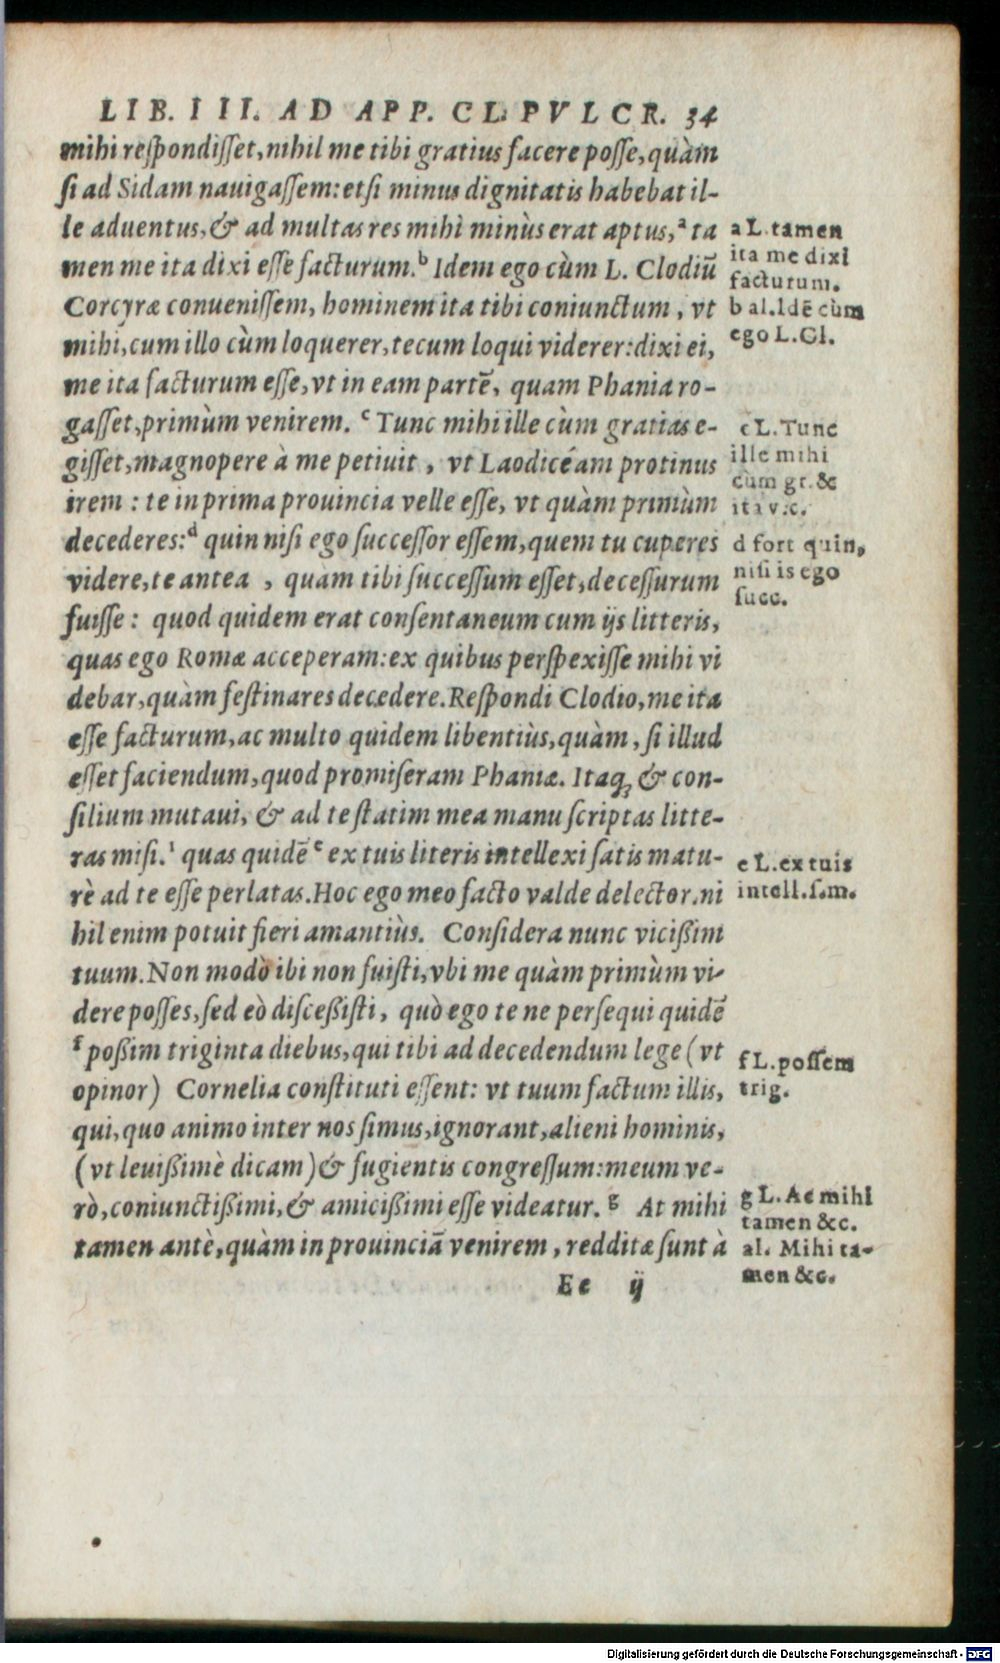 LIB. III. AD APP. CL. PVLCR. 34
mihi respondisset, nihil me tibi gratius facere posse, quàm
si ad Sidam nauigassem: etsi minus dignitatis habebat il-
le aduentus, & ad multas res mihì minùs erat aptus, a ta
men me ita dixi esse facturum. b Idem ego cùm L. Clodiū
Corcyræ conuenissem, hominem ita tibi coniunctum, vt
mihi, cum illo cùm loquerer, tecum loqui viderer: dixi ei,
me ita facturum esse, vt in eam partē, quam Phania ro-
gasset, primùm venirem. c Tunc mihi ille cùm gratias e-
gisset, magnopere à me petiuit, vt Laodicéam protinus
irem: te in prima prouincia velle esse, vt quàm primùm
decederes: d quin nisi ego successor essem, quem tu cuperes
videre, te antea, quàm tibi successum esset, decessurum
fuisse: quod quidem erat consentaneum cum ijs litteris,
quas ego Romæ acceperam: ex quibus perspexisse mihi vi
debar, quàm festinares decedere. Respondi Clodio, me ita
esse facturum, ac multo quidem libentiùs, quàm, si illud
esset faciendum, quod promiseram Phaniæ. Itaq; & con-
silium mutaui, & ad te statim mea manu scriptas litte-
ras misi. 1 quas quidē e ex tuis literis intellexi satis matu-
rè ad te esse perlatas. Hoc ego meo facto valde delector. ni
hil enim potuit fieri amantiùs. Considera nunc vicißim
tuum. Non modò ibi non fuisti, vbi me quàm primùm vi-
dere posses, sed eò disceßisti, quò ego te ne persequi quidē
f poßim triginta diebus, qui tibi ad decedendum lege (vt
opinor) Cornelia constituti essent: vt tuum factum illis,
qui, quo animo inter nos simus, ignorant, alieni hominis,
(vt leuißimè dicam) & fugientis congressum: meum ve-
rò, coniunctißimi, & amicißimi esse videatur. g At mihi
tamen antè, quàm in prouinciā venirem, redditæ sunt à
Ee ij
a L. tamen
ita me dixi
facturum.
b al. Idē cùm
ego L. Cl.
c L. Tunc
ille mihi
cùm gr. &
ita v.c.
d fort quin,
nisi is ego
succ.
e L. ex tuis
intell. s. m.
f L. possem
trig.
g L. Ac mihi
tamen &c.
al. Mihi ta-
men &c.
Digitalisierung gefördert durch die Deutsche Forschungsgemeinschaft - DFG